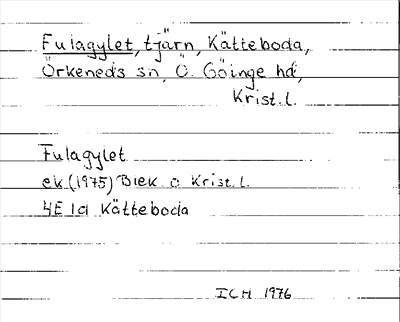 Fulagylet, tjärn, Kätteboda,
Örkeneds sn, Ö. Göinge hd,
Krist. l.
Fulagylet
ek (1975) Blek. o Krist. l.
4E 1d Kätteboda
ICH 1976